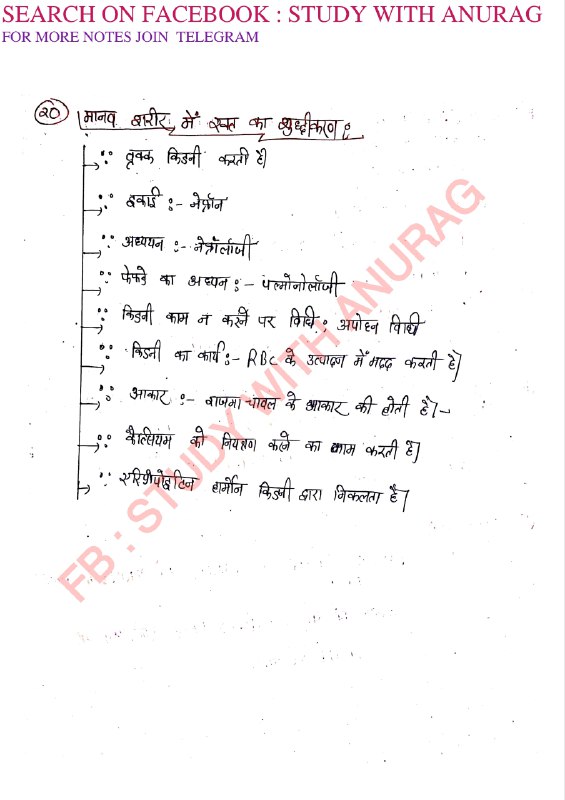 SEARCH ON FACEBOOK : STUDY WITH ANURAG
FOR MORE NOTES JOIN TELEGRAM
20 मानव शरीर में रक्त का शुद्धीकरण :
वृक्क किडनी करती है।
इकाई :- नेफ्रॉन
अध्ययन :- नेफ्रॉलॉजी
फेफडे का अध्यन :- पल्मोनोलॉजी
किडनी काम न करने पर विधि : अपोहन विधी
किडनी का कार्य :- RBC के उत्पादन में मदद करती है।
आकार :- राजमा चावल के आकार की होती है।-
कैल्सियम को नियंत्रण करने का काम करती है।
एरिथ्रोपोइटिन हार्मोन किडनी द्वारा निकलता है।
FB : STUDY WITH ANURAG